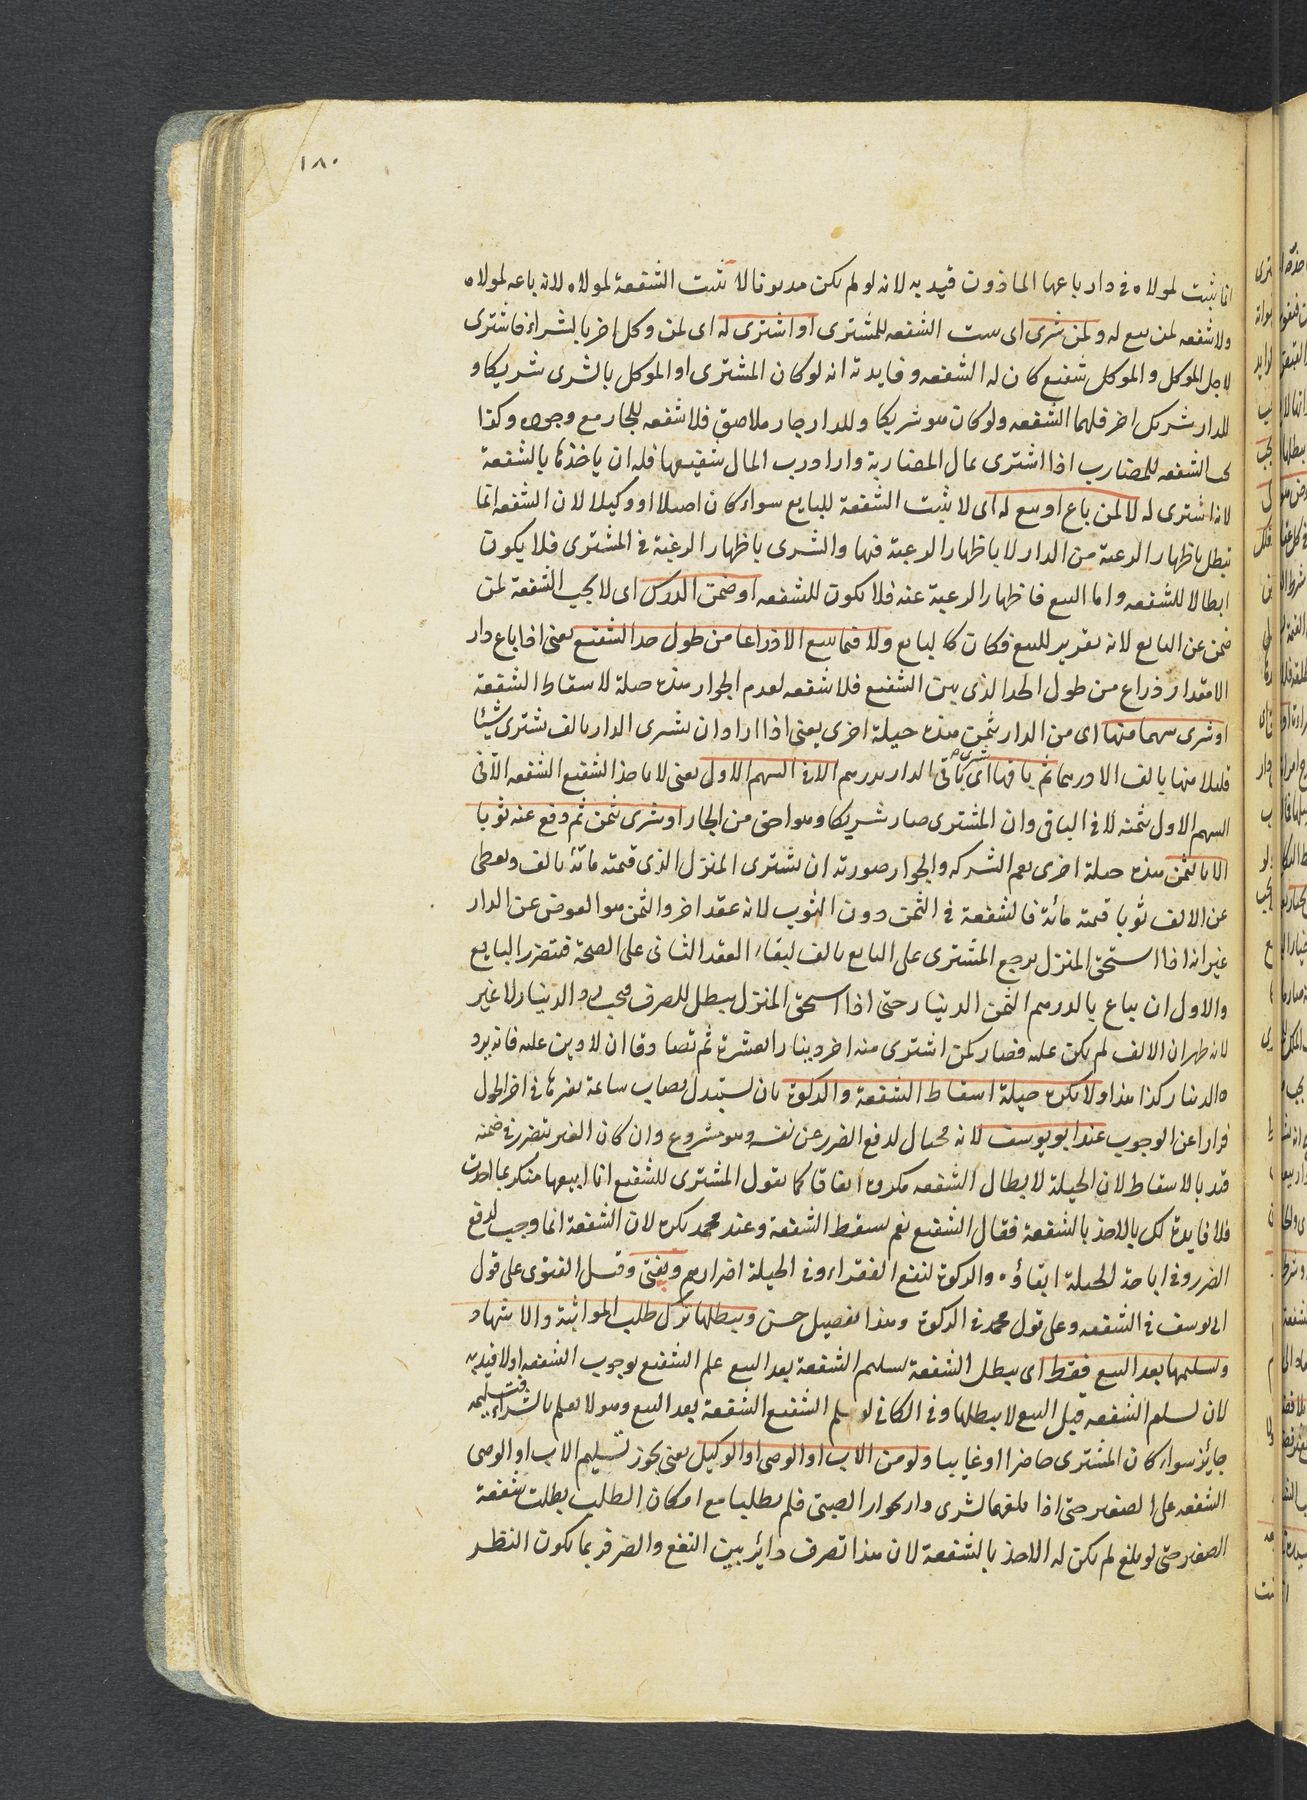 ١٨٠
انما يثبت لمولاه فى دار باعها الماذون قيد به لانه لو لم يكن مديونا لا يثبت الشفعة لمولاه لانه باعه لمولاه
ولا شفعه لمن بيع له ولمن شرى اى يثبت الشفعه للمشترى او اشترى له اى لمن وكل اخر بالشراء فاشترى
لاجل الموكل والموكل شفيع كان له الشفعه وفايدته انه لو كان المشترى او الموكل بالشرى شريكا و
للدار شريك اخر فلهما الشفعه ولو كان هو شريكا وللدار جار ملاصق فلا شفعه للجار مع وجوده وكذا
يجب الشفعه للمضارب اذا اشترى بمال المضاربة دارا ورب المال شفيعها فله ان ياخذها بالشفعة
لانه اشترى له لا لمن باع او بيع له اى لا يثبت الشفعة للبايع سواء كان اصيلا او وكيلا لان الشفعه انما
تبطل باظهار الرغبة من الدار لا باظهار الرغبة فيها والشرى باظهار الرغبة فى المشترى فلا يكون
ابطالا للشفعه واما البيع فاظهار الرغبة عنه فلا تكون للشفعه او ضمن الدرك اى لا يجب الشفعة لمن
ضمن عن البايع لانه تقرير للبيع فكان كالبايع ولا فيما بيع الا ذراعا من طول حد الشفيع يعنى اذا باع دار
الا مقدار ذراع من طول الحد الذى يين الشفيع فلا شفعه لعدم الجوار هذه حيلة لاسقاط الشفعة
او شرى سهما منها اى من الدار بثمن هذه حيلة اخرى يعنى اذا اراد ان يشترى الدار بالف يشترى شيئا
قليلا منها بالف الا درهما ثم باقيها اى شرى باقى الدار بدرهم الا فى السهم الاول يعنى لا ياخذ الشفيع الشفعه الا فى
السهم الاول بثمنه لا فى الباقى وان المشترى صار شريكا وهو احق من الجار او شرى بثمن ثم دفع عنه ثوبا
الا بالثمن هذه حيلة اخرى يعم الشركه والجوار صورته ان يشترى المنزل الذى قيمته مائة بالف ويعطى
عن الالف ثوبا قيمته مائة فالشفعة فى الثمن دون الثوب لانه عقد اخر والثمن هو العوض عن الدار
غير انه اذا استحق المنزل يرجع المشترى على البايع بالف لبقاء العقد الثانى على الصحة فيتضرر البايع
والاول ان يباع بالدرهم الثمن الدينار حتى اذا استحق المنزل يبطل للصرف فيجب رد الدينار لا غير
لانه ظهر ان الالف لم يكن عليه فصار كمن اشترى منه اخر دينارا بعشرة ثم تصادقا ان لا دين عليه فانه يرد
ه الدينار كذا هذا ولا يكره حيلة اسقاط الشفعة والزكوة بان يستبدل نصاب ساعة بغيرها فى اخر الحول
فرارا عن الوجوب عند ابو يوسف لانه محتال لدفع الضرر عن نفسه وهو مشروع وان كان الغير يتضرر فى ضمنه
قيد بالاسقاط لان الحيلة لابطال الشفعه مكروه اتفاقا كما يقول المشترى للشفيع انا ابيعها منك بما اخذت
فلا فايدة لك بالاخذ بالشفعة فقال الشفيع نعم سقط الشفعة وعند محمد يكره لان الشفعة انما وجب لدفع
الضرر وفى اباحة الحيلة ابقاؤه والزكوة لنفع الفقراء وفى الحيلة اضرارهم ويفتى وقيل الفتوى على قول
ابى يوسف فى الشفعه وعلى قول محمد فى الزكوة وهذا تفصيل حسن ويبطلها ترك طلب المواثبة والاشهاد
وتسليمها بعد البيع فقط اى يبطل الشفعة تسليم الشفعة بعد البيع علم الشفيع بوجوب الشفعه اولا قيد به
لان تسليم الشفعه قبل البيع لا يبطلها وفى الكافى لو سلم الشفيع الشفعة بعد البيع وهو لا يعلم بالشراء فتسليمه
جائز سواء كان المشترى حاضرا او غايبا ولو من الاب او الوصى او الوكيل يعنى يجوز تسليم الاب او الوصى
الشفعه على الصغير حتى اذا بلغهما شرى دار بجوار الصبى فلم يطلبا مع امكان الطلب بطلت شفعة
الصغير حتى لو بلغ لم يكن له الاخذ بالشفعة لان هذا تصرف دائر بين النفع والضر فربما يكون النظر